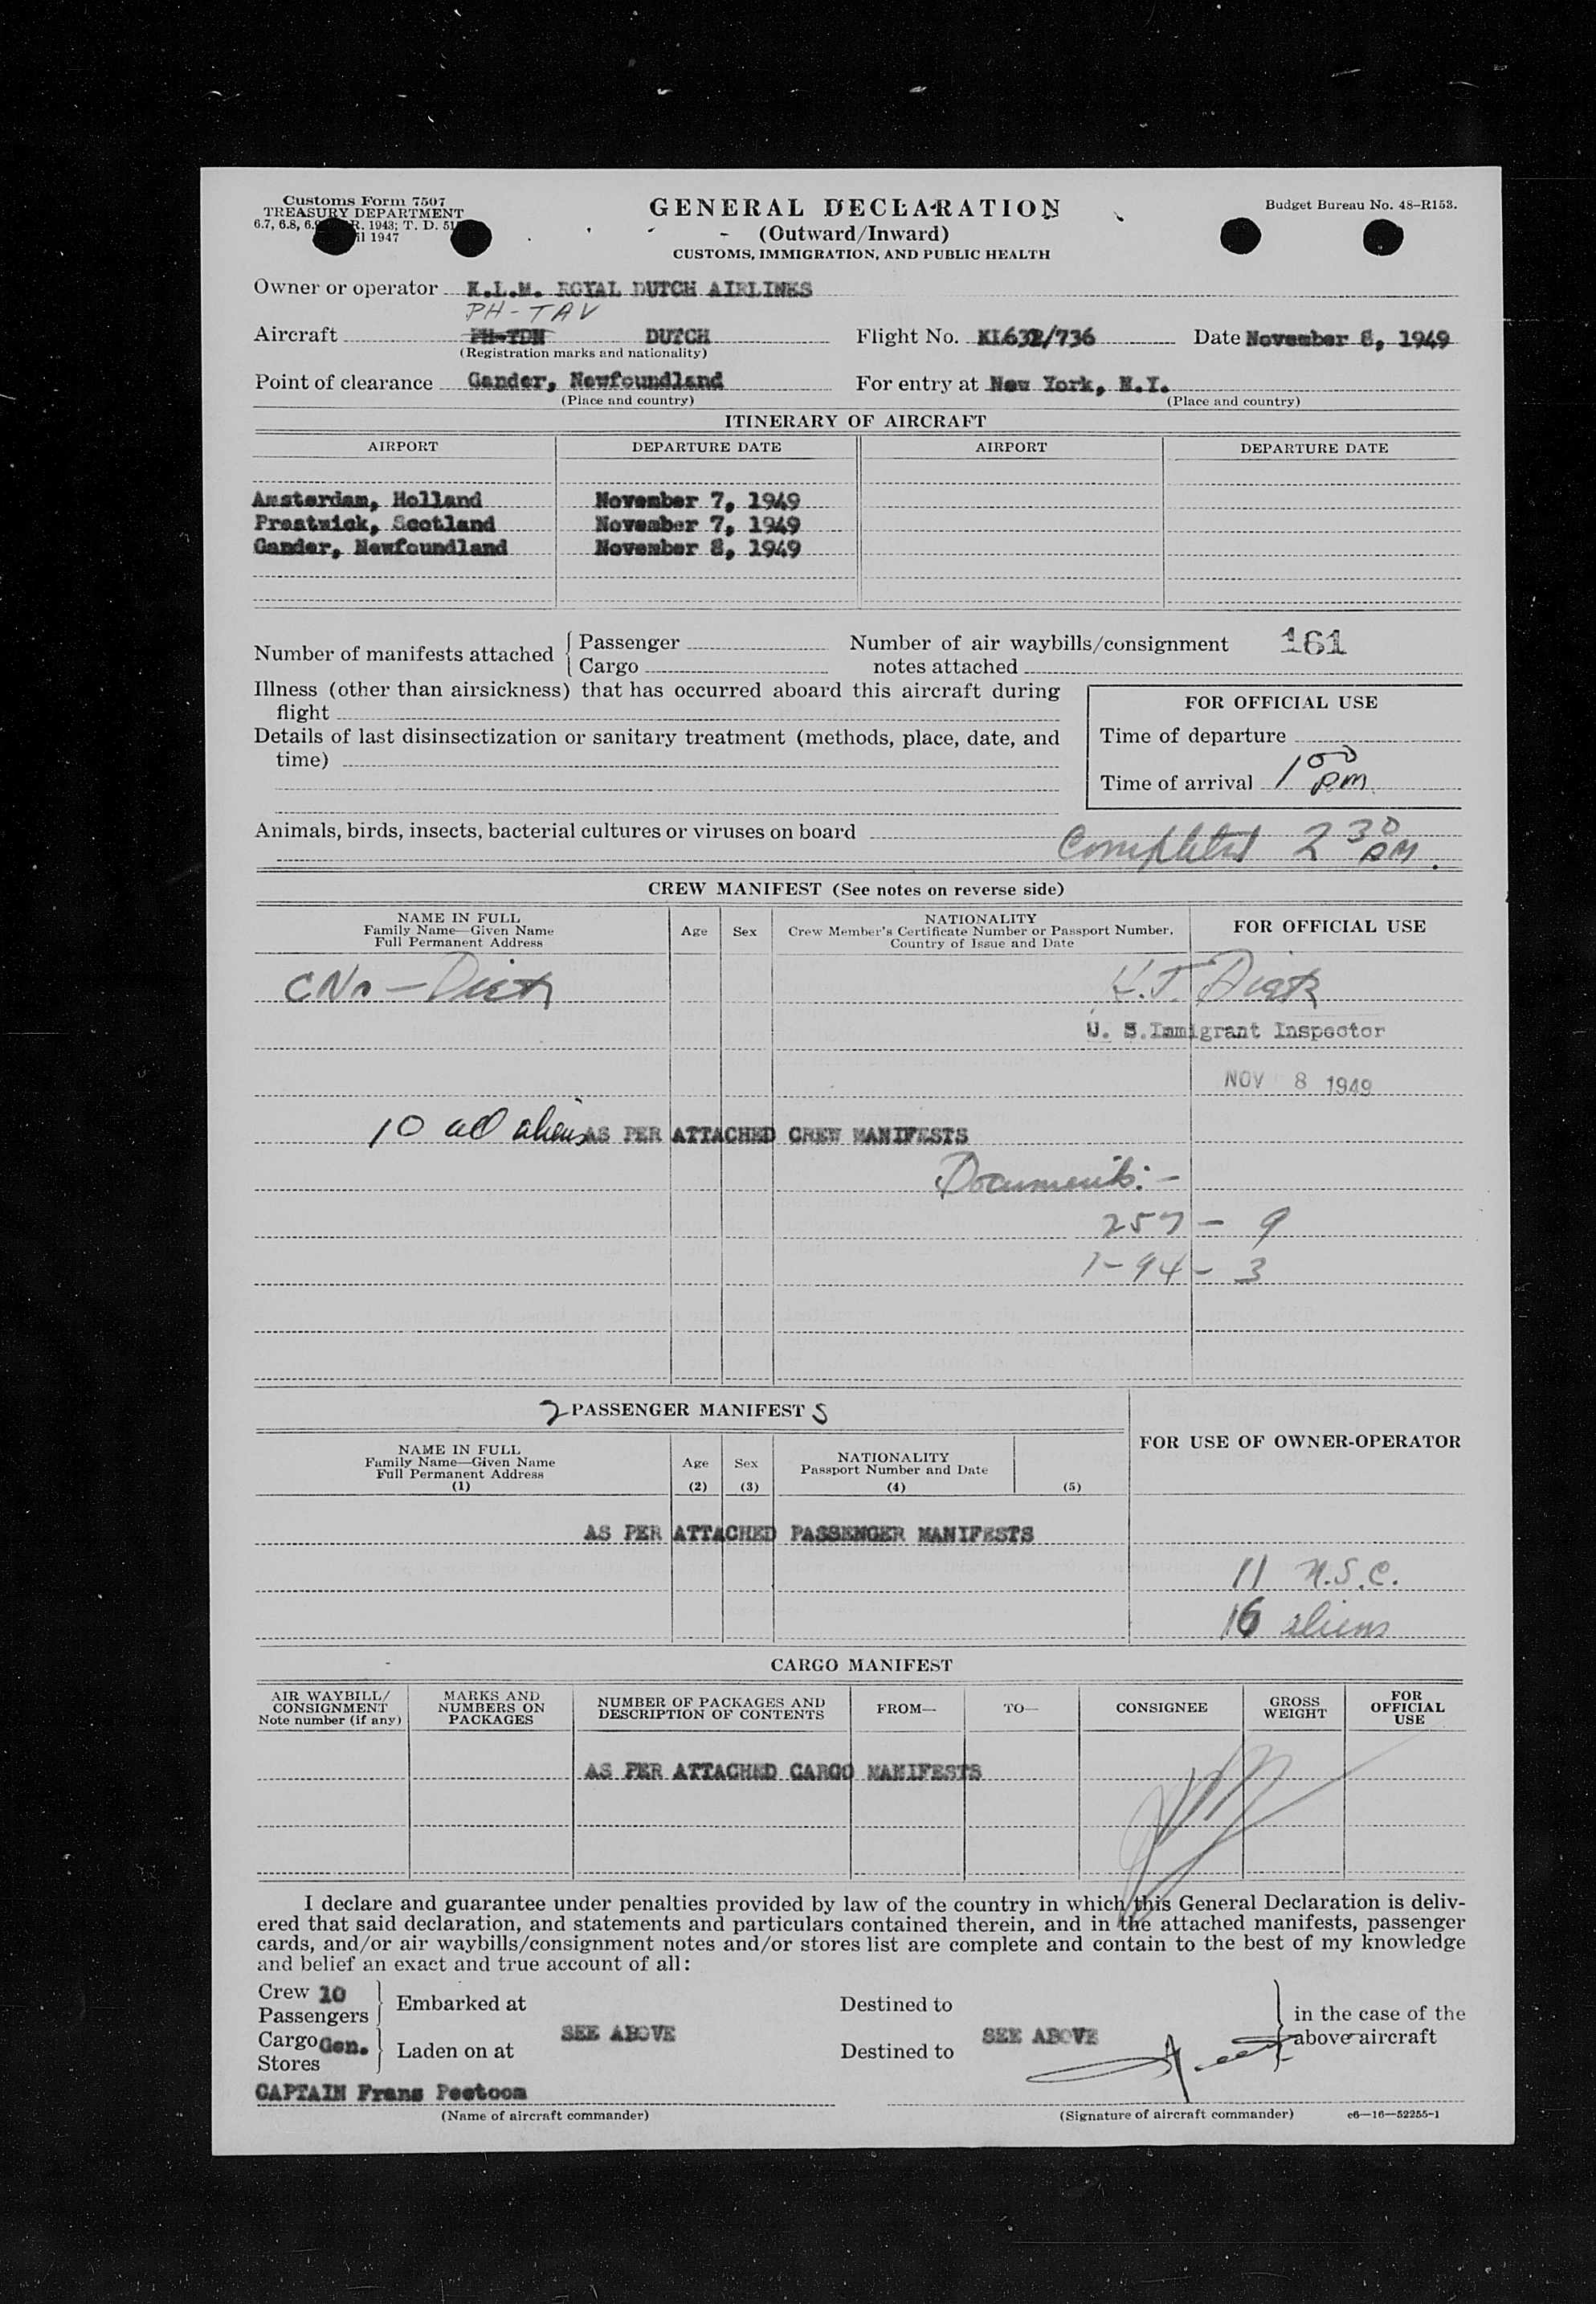 Customs Form 7507
TREASURY DEPARTMENT
GENERAL DECLARATION
Budget Bureau No. 48-R153.
6.7, 6.8, 1943; T. D.
1947
(Outward/Inward)
CUSTOMS, IMMIGRATION, AND PUBLIC HEALTH
Owner or operator K.L.M. ROYAL DUTCH AIRLINES
PH-TAV
Aircraft PH-TDN DUTCH Flight No. /736 Date November 8, 1949
(Registration marks and nationality)
Point of clearance Gander, Newfoundland For entry at New York, N.Y.
(Place and country) (Place and country)
ITINERARY OF AIRCRAFT
AIRPORT DEPARTURE DATE AIRPORT DEPARTURE DATE
Amsterdam, Holland November 7, 1949
Prestwick, Scotland November 7, 1949
Gander, Newfoundland November 8, 1949
Number of manifests attached { Passenger Number of air waybills/consignment 161
Cargo notes attached
Illness (other than airsickness) that has occurred aboard this aircraft during
flight
FOR OFFICIAL USE
Details of last disinsectization or sanitary treatment (methods, place, date, and
time)
Time of departure
Time of arrival 1 00 pm
Animals, birds, insects, bacterial cultures or viruses on board
Completed 2 30 pm.
CREW MANIFEST (See notes on reverse side)
NAME IN FULL
Family Name—Given Name
Full Permanent Address
Age Sex
NATIONALITY
Crew Member's Certificate Number or Passport Number,
Country of Issue and Date
FOR OFFICIAL USE
U. S. Immigrant Inspector
NOV 8 1949
10 all aliens AS PER ATTACHED CREW MANIFESTS
Documents: -
257 - 9
I-94 - 3
2 PASSENGER MANIFEST S
NAME IN FULL
Family Name—Given Name
Full Permanent Address
(1)
Age
(2)
Sex
(3)
NATIONALITY
Passport Number and Date
(4)
(5)
FOR USE OF OWNER-OPERATOR
AS PER ATTACHED PASSENGER MANIFESTS
11 U.S.C.
16 aliens
CARGO MANIFEST
AIR WAYBILL/
CONSIGNMENT
Note number (if any)
MARKS AND
NUMBERS ON
PACKAGES
NUMBER OF PACKAGES AND
DESCRIPTION OF CONTENTS
FROM—
TO—
CONSIGNEE
GROSS
WEIGHT
FOR
OFFICIAL
USE
AS PER ATTACHED CARGO MANIFESTS
I declare and guarantee under penalties provided by law of the country in which this General Declaration is deliv-
ered that said declaration, and statements and particulars contained therein, and in the attached manifests, passenger
cards, and/or air waybills/consignment notes and/or stores list are complete and contain to the best of my knowledge
and belief an exact and true account of all:
Crew 10
Passengers
Embarked at
Destined to
in the case of the
above aircraft
Cargo Gen.
Stores
Laden on at
SEE ABOVE
Destined to
SEE ABOVE
CAPTAIN Frans Peetoom
(Name of aircraft commander) (Signature of aircraft commander) c6—16—52255-1